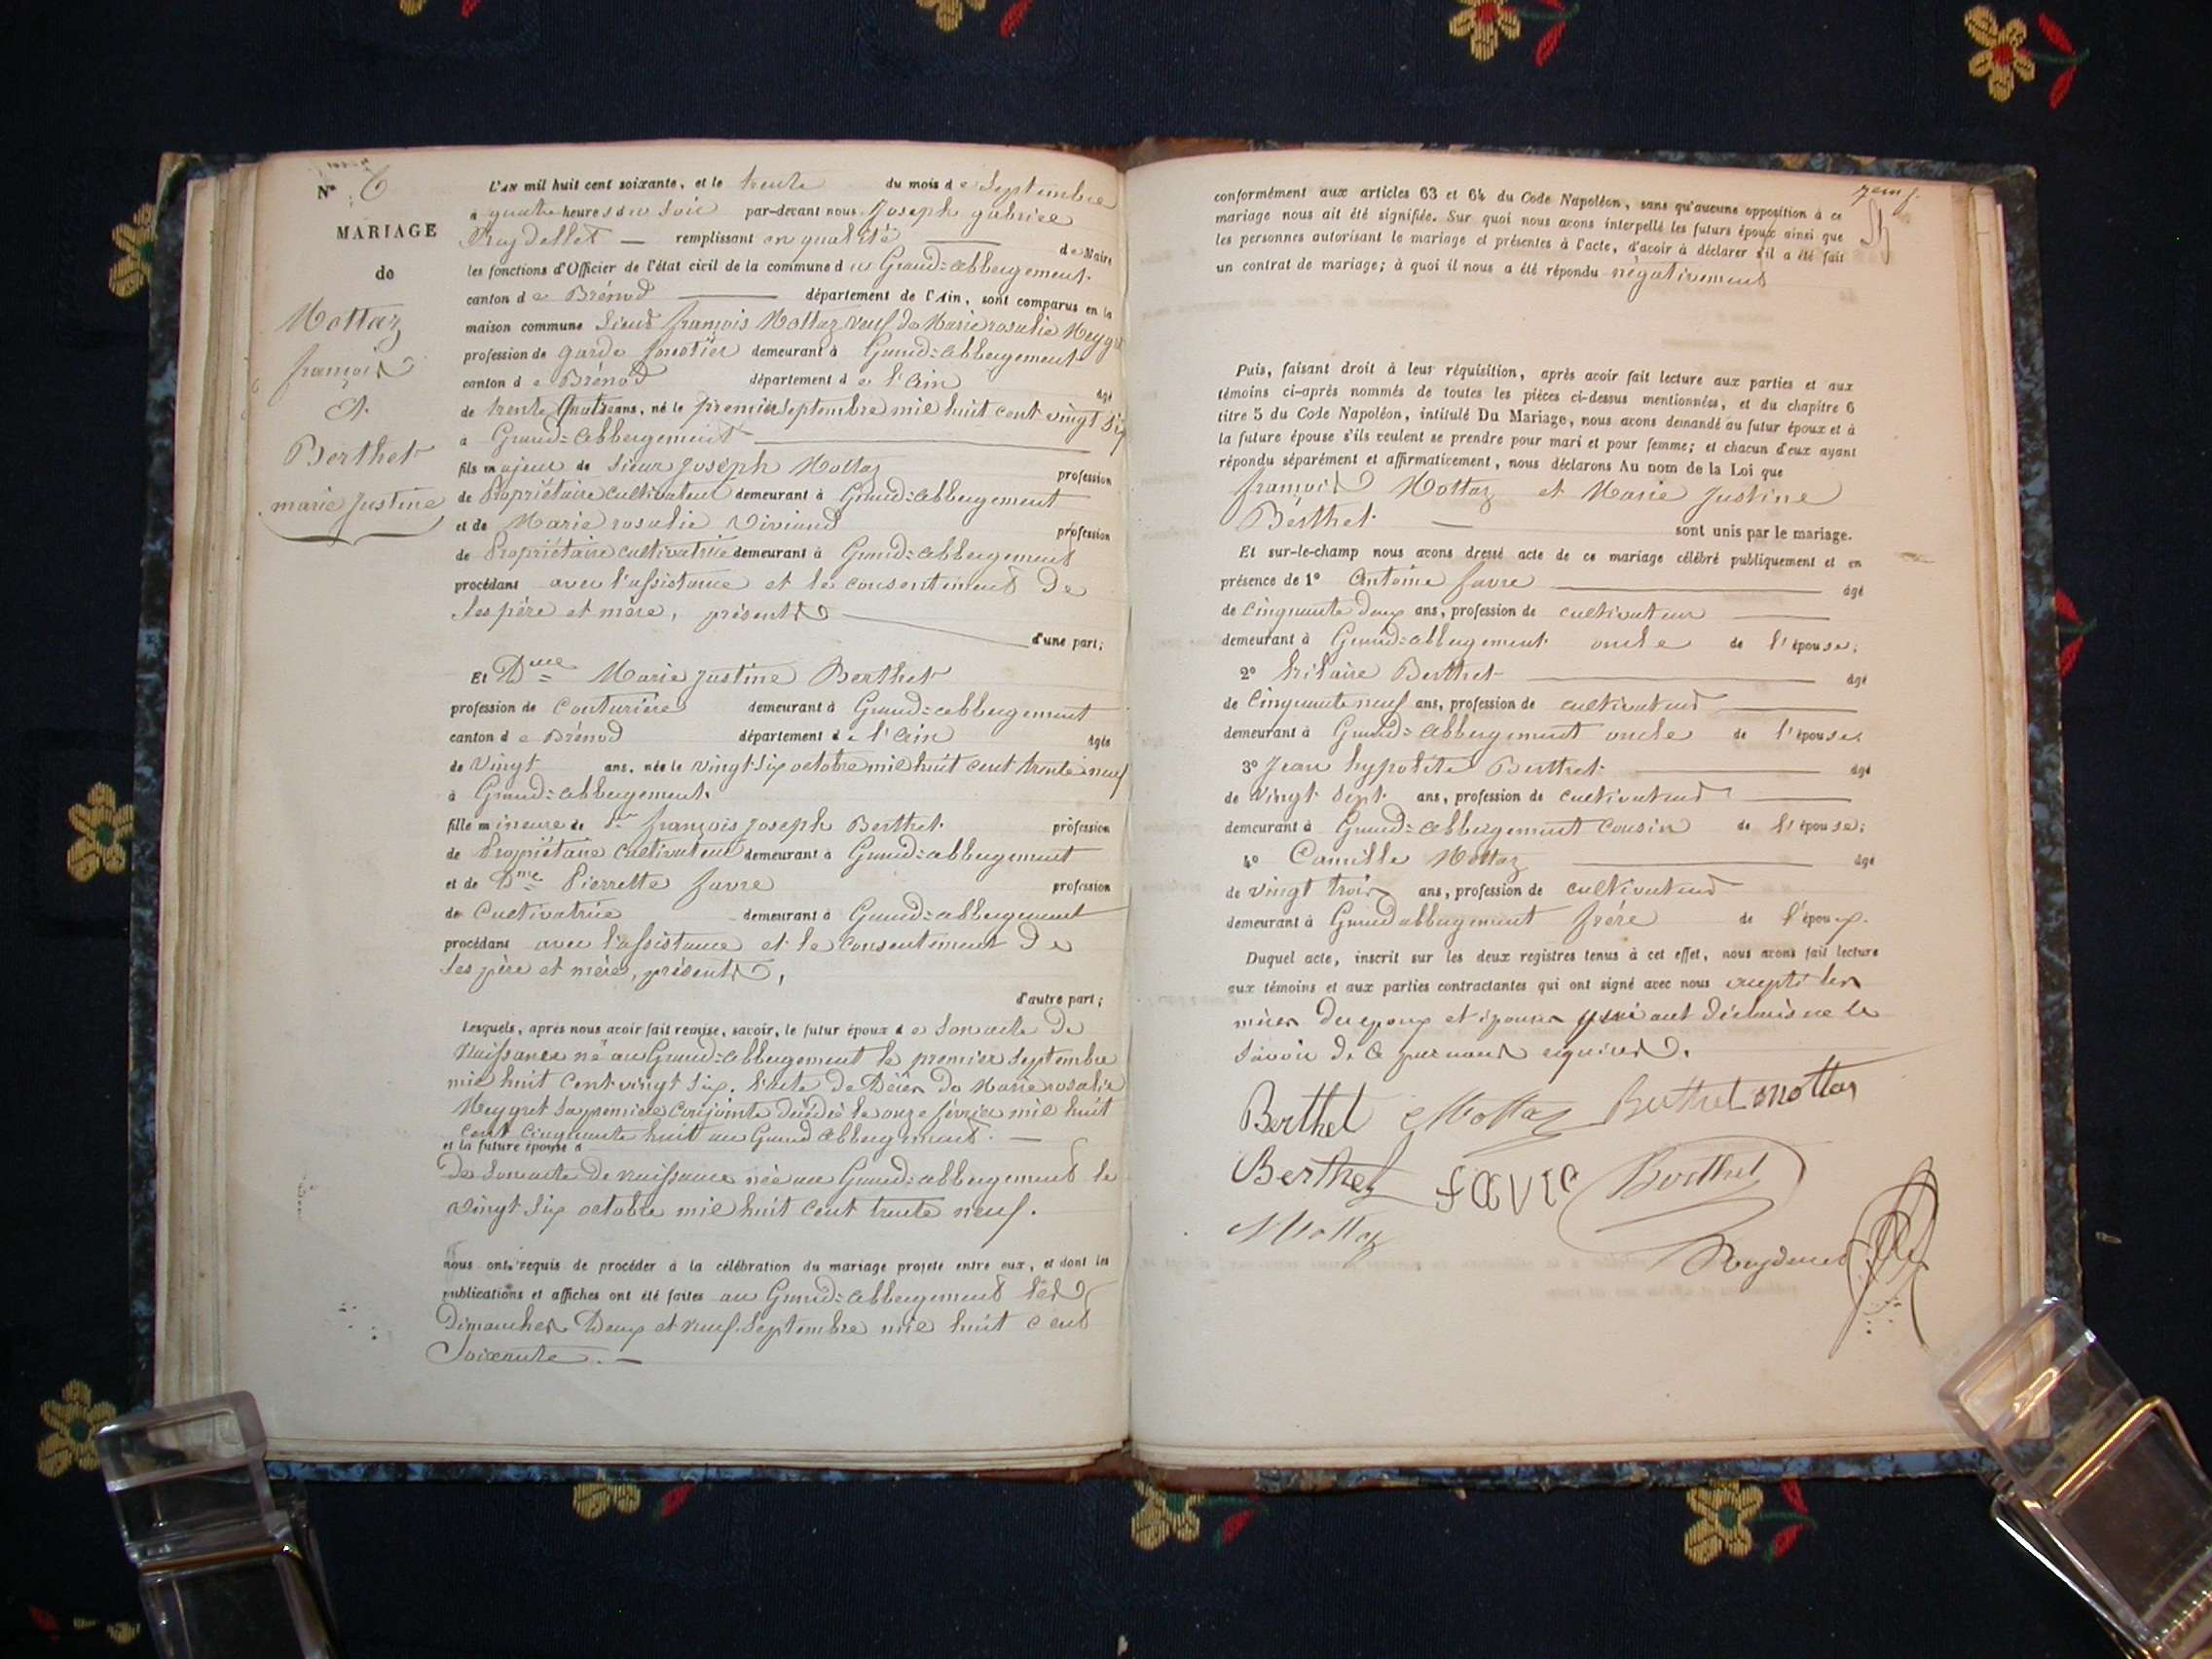 N° 6
MARIAGE
de
Mottaz
françois
et
Berthet
marie justine
L'AN mil huit cent soixante, et le trente du mois de Septembre
à quatre heures du soir par-devant nous Joseph gabriel
remplissant en qualité de Maire
les fonctions d'Officier de l'état civil de la commune du Grand=abbergement
canton de Brénod département de l'Ain, sont comparus en la
maison commune Sieur françois Mottaz veuf de Marie rosalie Meygret
profession de garde forestier demeurant à Grand=abbergement
canton de Brénod département de l'ain âgé
de trente quatre ans, né le premier septembre mil huit cent vingt six
à Grand=abbergement
fils majeur de Sieur joseph Mottaz profession
de Propriétaire cultivateur demeurant à Grand=abbergement
et de Marie rosalie Viviand profession
de Propriétaire cultivatrice demeurant à Grand=abbergement
procédant avec l'assistance et le consentement de
ses père et mère, présents
d'une part;
Et Dlle Marie justine Berthet
profession de Couturière demeurant à Grand=abbergement
canton de Brénod département de l'ain âgée
de vingt ans, née le vingt six octobre mil huit cent trente neuf
à Grand=abbergement
fille mineure de Sr françois joseph Berthet profession
de Propriétaire Cultivateur demeurant à Grand=abbergement
et de Dme Pierrette favre profession
de Cultivatrice demeurant à Grand=abbergement
procédant avec l'assistance et le consentement de
ses père et mère, présents,
d'autre part;
Lesquels, après nous avoir fait remise, savoir, le futur époux de Son acte de
Naissance né au Grand=abbergement le premier septembre
mil huit cent vingt six. l'acte de Décès de Marie rosalie
Meygret sa première conjointe décédée le onze février mil huit
cent cinquante huit au Grand abbergement.
et la future épouse
De son acte de naissance née au Grand=abbergement le
vingt six octobre mil huit cent trente neuf.
nous ont requis de procéder à la célébration du mariage projeté entre eux, et dont les
publications et affiches ont été faites au Grand=abbergement les
Dimanches Deux et neuf septembre mil huit cent
Soixante.
conformément aux articles 63 et 64 du Code Napoléon, sans qu'aucune opposition à ce
mariage nous ait été signifiée. Sur quoi nous avons interpellé les futurs époux ainsi que
les personnes autorisant le mariage et présentes à l'acte, d'avoir à déclarer s'il a été fait
un contrat de mariage; à quoi il nous a été répondu négativement
Puis, faisant droit à leur réquisition, après avoir fait lecture aux parties et aux
témoins ci-après nommés de toutes les pièces ci-dessus mentionnées, et du chapitre 6
titre 5 du Code Napoléon, intitulé Du Mariage, nous avons demandé au futur époux et à
la future épouse s'ils veulent se prendre pour mari et pour femme; et chacun d'eux ayant
répondu séparément et affirmativement, nous déclarons Au nom de la Loi que
françois Mottaz et Marie justine
Berthet sont unis par le mariage.
Et sur-le-champ nous avons dressé acte de ce mariage célébré publiquement et en
présence de 1° Antoine favre âgé
de Cinquante deux ans, profession de cultivateur
demeurant à Grand=abbergement oncle de l'épouse;
2° hilaire Berthet âgé
de Cinquante neuf ans, profession de cultivateur
demeurant à Grand=abbergement oncle de l'épouse
3° Jean hypolite Berthet âgé
de Vingt Sept ans, profession de cultivateur
demeurant à Grand=abbergement Cousin de l'épouse;
4° Camille Mottaz âgé
de vingt trois ans, profession de cultivateur
demeurant à Grand abbergement frère de l'époux.
Duquel acte, inscrit sur les deux registres tenus à cet effet, nous avons fait lecture
aux témoins et aux parties contractantes qui ont signé avec nous excepté les
mères des époux et épouse qui ont déclaré ne le
savoir de ce par nous requises.
Berthet Mottaz Berthet Mottaz
Berthet favre Berthet
Mottaz